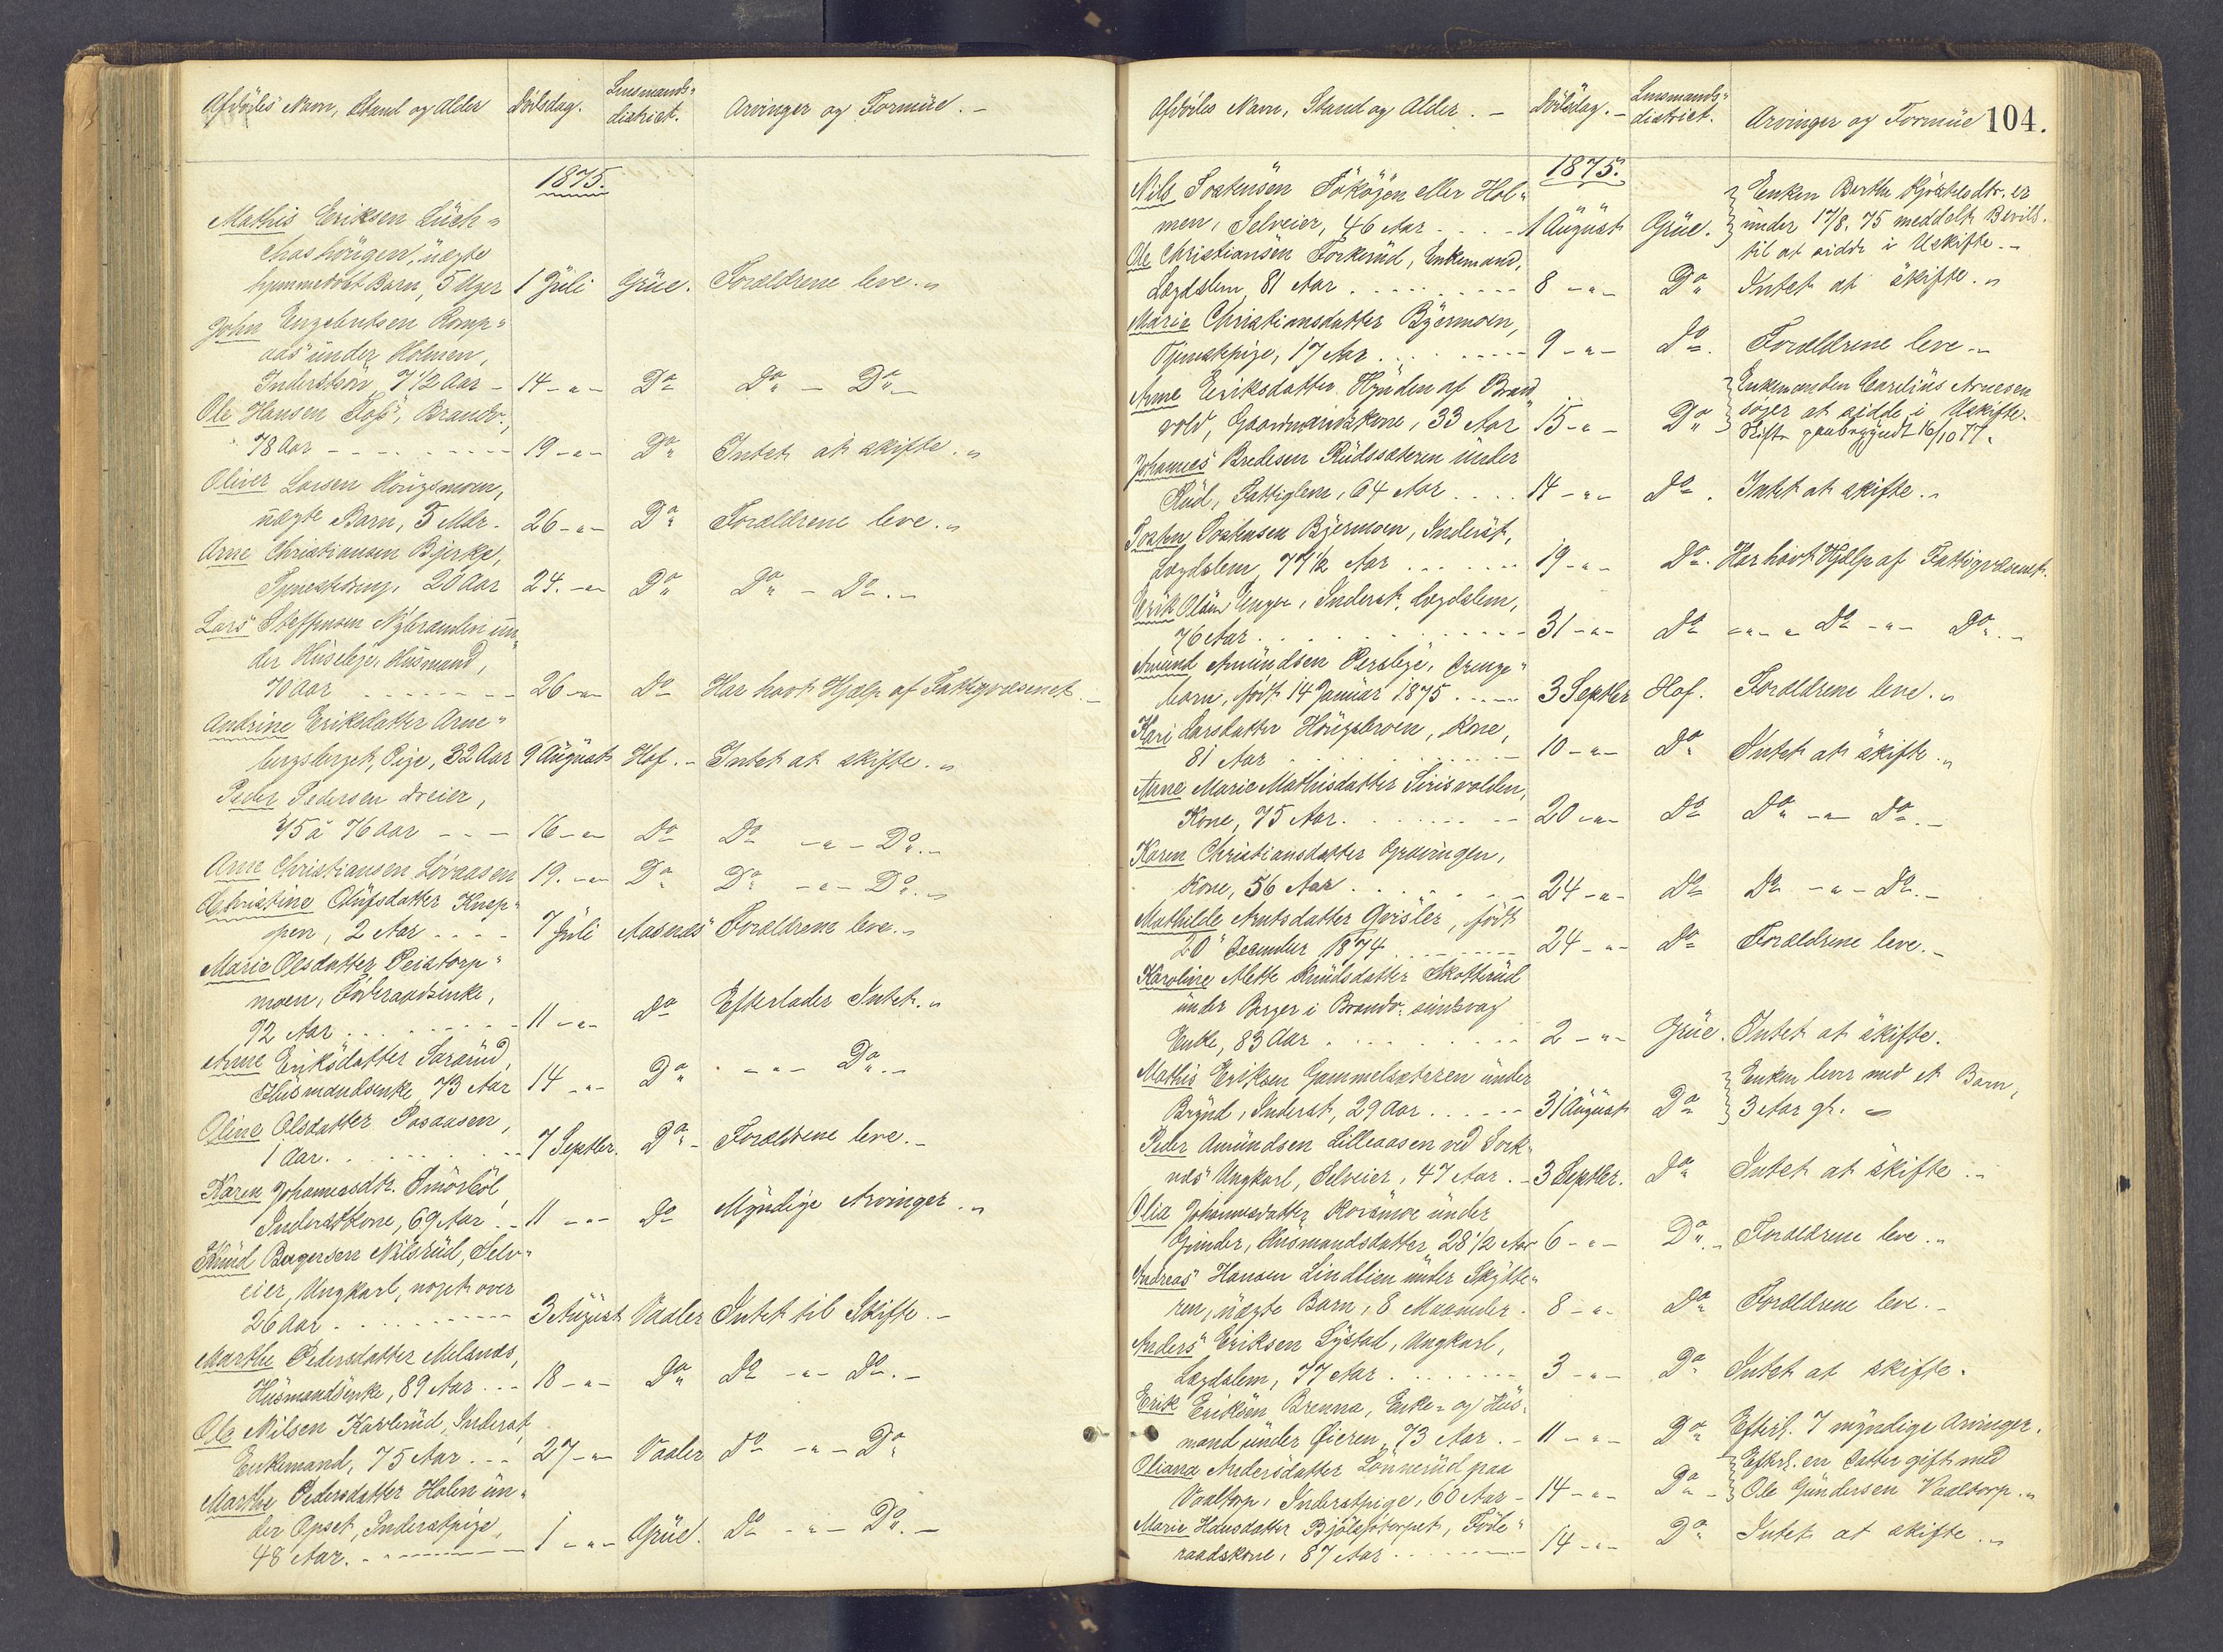 Afdødes Navn, Stand og Alder Dødsdag. Lensmands-
district. Arvinger og Formue. -
1875.
Mathis Eriksen
hougen, uægte
hjemmedøbt Barn, 5 Uger 1 Juli Grue. Forældrene leve. "
John Engebretsen Romp"
aas under Holmen,
Inderstsøn, 7 1/2 Aar - 14 - " - Do Do - Do -
Ole Hansen Foss, Brandv.,
78 Aar - 19 - " - Do Intet at skifte. "
Oliver Larsen Hougsmoen,
uægte Barn, 5 Mdr. - 26 - " - Do Forældrene leve. "
Arne Christiansen Bjerke,
Tjenestedreng, 20 Aar 24. - " - Do Do - Do. -
Lars Steffensen Nybraaten un"
der Huseby, Husmand,
70 Aar - 26 - " - Do Har havt Hjælp af Fattigvæsenet. -
Andrine Eriksdatter Arne"
bergsberget, Pige, 32 Aar 9 August Hof. - Intet at skifte. "
Peder Pedersen Dreier,
75 à 76 Aar - - - 16 - " - Do Do - " - Do. -
Arne Christiansen Løvaasen 19. - " - Do Do - " - Do. "
Christine Olufsdatter Knap"
open, 2 Aar 7 Juli Aasnes Forældrene leve. "
Marie Olsdatter Peistorp"
moen, Føderaadsenke,
92 Aar 11 - " - Do Efterlader Intet. "
Anne Eriksdatter Sararud,
Husmandsenke, 73 Aar 14 - " - Do - " - Do. -
Oline Olsdatter Posaasen,
1 Aar 7 Septbr. Do - Forældrene leve. -
Karen Johannesdtr. Smørbøl,
Inderstkone, 69 Aar. - 11 - " - Do Myndige Arvinger. "
Knud Bergersen Nilsrud, Selv"
eier, Ungkarl, noget over
26 Aar 3 August Vaaler Intet til Skifte. -
Marthe Pedersdatter Melanes,
Husmandsenke, 89 Aar. - 18 - " - Do Do - " - Do. -
Ole Nilsen Kavlerud, Inderst,
Enkemand, 75 Aar. - 27 - " - Vaaler Do - " - Do
Marthe Pedersdatter Holen un"
der Opset, Inderstpige,
48 Aar. 1 - " - Grue. Do - " - Do. -
Afdødes Navn, Stand og Alder. - Dødsdag. - Lensmands-
district. Arvinger og Formue 104.
1875.
Nils Tostensen eller Hol" Enken Berthe er
men, Selveier, 46 Aar 1 August Grue. under 17/8. 75 meddelt Bevill.
til at sidde i Uskifte. -
Ole Christiansen Torkerud, Enkemand,
Lægdslem, 81 Aar 8 - " - Do Intet at skifte. "
Marie Christiansdatter Bjermoen,
Tjenestepige, 17 Aar 9 - " - Do. Forældrene leve. "
Anne Eriksdatter Hynden af Brand Enkemanden Carelius Arnesen
vold, Gaardmandskone, 33 Aar 15 - " - Do søger at sidde i Uskifte.
Skifte paabegyndt 16/10 77.
Johannes Bredesen Rudssæteren under
Rud, Fattiglem, 64 Aar 14 - " - Do. Intet at skifte. "
Tosten Tostensen Bjermoen, Inderst,
Lægdslem, 77 1/2 Aar 19 - " - Do. Har havt Hjælp af Fattigvæsenet.
Erik Olsen Unger, Inderst, Lægdslem,
76 Aar 31 - " - Do - " - " Do - " - Do. -
Amund Amundsen Persbye, Drenge"
barn, født 14 Januar 1875 3 Septbr Hof. Forældrene leve. "
Kari Larsdatter Hougsbroen, Kone,
81 Aar 10 - " - Do Intet at skifte. "
Anne Marie Mathisdatter Sirisvolden,
Kone, 75 Aar. 20 - " - Do Do - " - Do. -
Karen Christiansdatter Gravingen,
Kone, 56 Aar 24 - " - Do Do - " - Do. -
Mathilde Arntsdatter Geisler, født
20 December 1874. 24 - " - Do Forældrene leve. -
Karoline Mette Knudsdatter Skotterud
under Berger i Brandv. sindsvag
Enke, 83 Aar 2 - " - Grue. Intet at skifte.
Mathis Eriksen Gammelsæteren under Enken lever med et Barn,
Brynd, Inderst, 29 Aar 31 August Do 3 Aar gl. -
Peder Amundsen Lilleaasen ved Sork"
nes Ungkarl, Selveier, 47 Aar. - 3 Septbr. Do Intet at skifte. -
Olia Johannesdatter under
Grinder, Husmandsdatter, 28 1/2 Aar 6 - " - Do. Forældrene leve. "
Andreas Hansen Lindlien under Skytte"
ren, uægte Barn, 8 Maaneder. 8 - " - Do Forældrene leve. -
Anders Eriksen Lystad, Ungkarl,
Lægdslem, 77 Aar 3 - " - Do Intet at skifte.
Erik Eriksen Brenna, Enke- og Hus"
mand under Øieren, 73 Aar. - 11 - " - Do Efterl. 7 myndige Arvinger.
Oliana Andersdatter Lønnerud paa Efterl. en Datter gift med
Vaaltorp, Inderstpige, 60 Aar - 14 - " - Do - Ole Gundersen Vaaltorp. "
Marie Hansdatter Bjølsetorpet, Føde"
raadskone, 87 Aar 14 - " - Do Intet at skifte. "